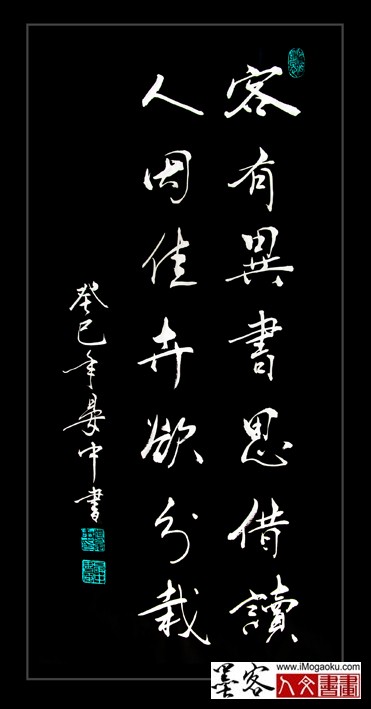 客有異書思借讀
人因佳卉欲分栽
癸巳年晏中書
墨客
www.iMogaoku.com
人文書畫